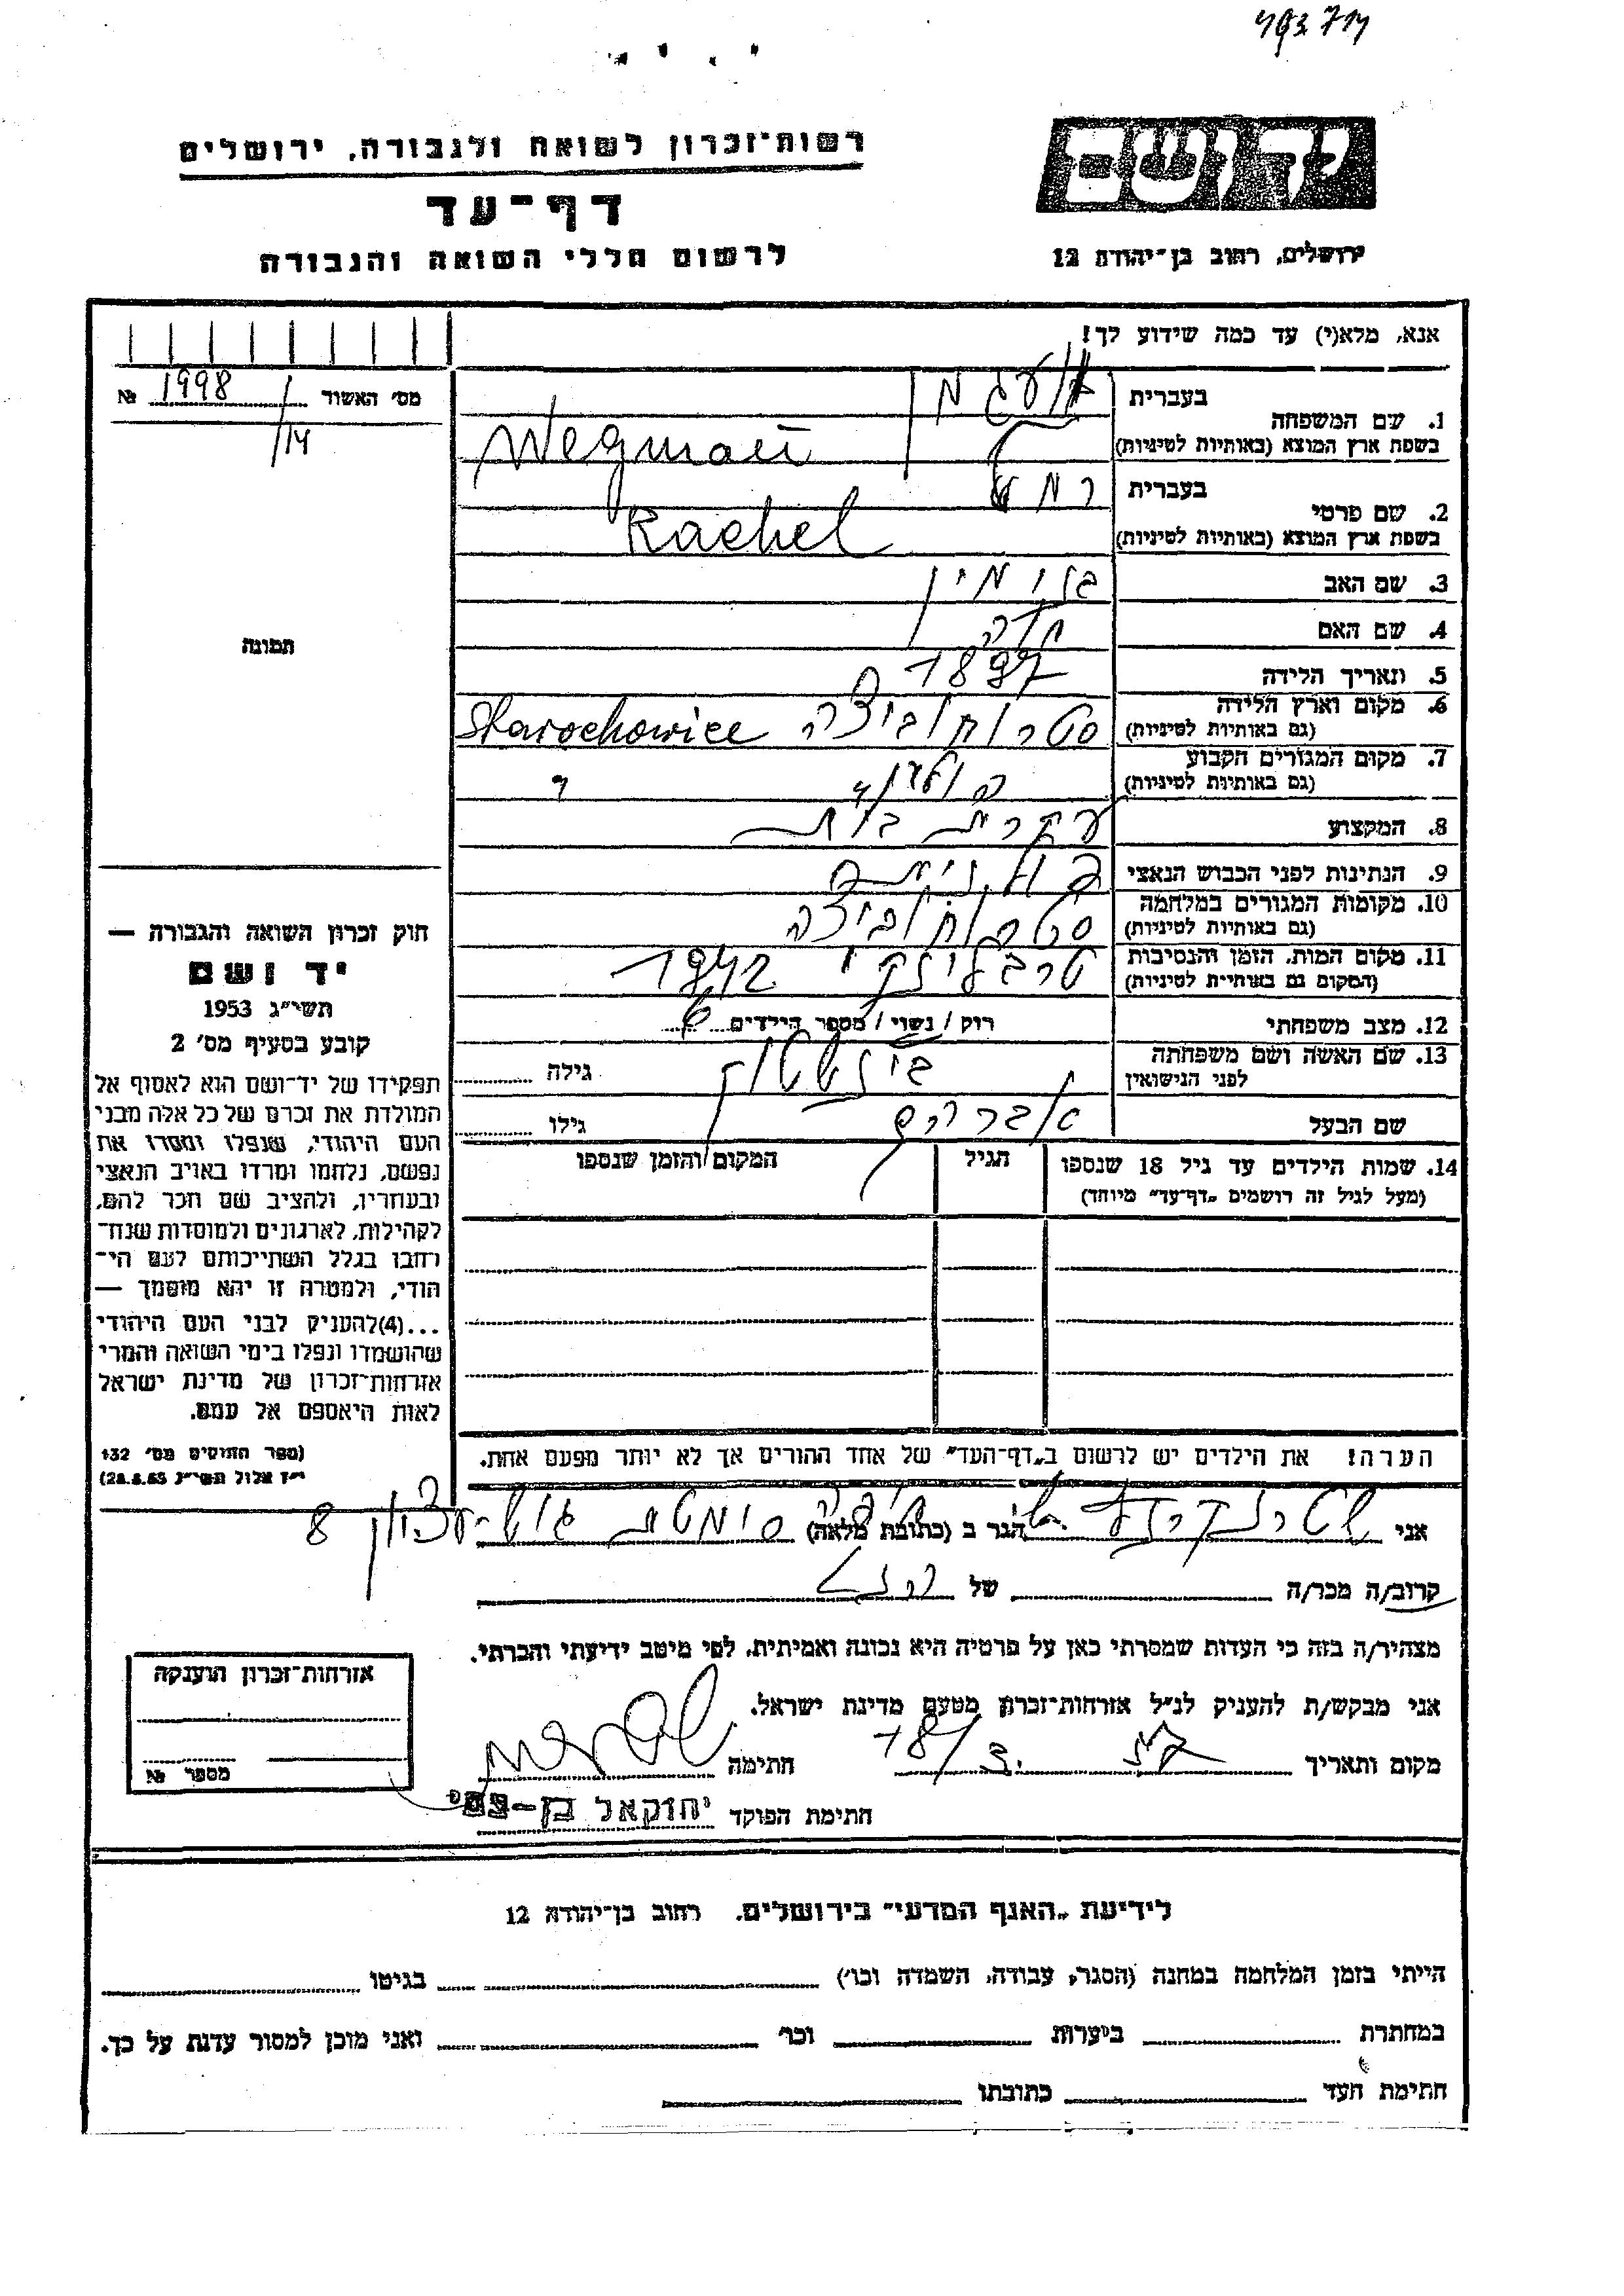 רשות־זכרון לשואה ולגבורה, ירושלים
דף־עד
לרשום חללי השואה והגבורה
יד ושם
ירושלים, רחוב בן־יהודה 12
אנא, מלא(י) עד כמה שידוע לך!
מס׳ האשור 1998 №
14
1. שם המשפחה
בעברית
בשפת ארץ המוצא (באותיות לטיניות) Wegman
2. שם פרטי
בעברית רחל
בשפת ארץ המוצא (באותיות לטיניות) Rachel
3. שם האב בנימין
4. שם האם חוה
5. תאריך הלידה 1897
6. מקום וארץ הלידה
(גם באותיות לטיניות) סטרוחוביצה Starochowice
7. מקום המגורים הקבוע
(גם באותיות לטיניות)
8. המקצוע עקרת בית
9. הנתינות לפני הכבוש הנאצי פולנית
10. מקומות המגורים במלחמה
(גם באותיות לטיניות) סטרוחוביצה
11. מקום המות, הזמן והנסיבות
(המקום גם באותיות לטיניות) טרבלינקי 1942
12. מצב משפחתי רוק/נשוי/מספר הילדים 6
13. שם האשה ושם משפחתה
לפני הנישואין גילה
שם הבעל אברהם גילו
14. שמות הילדים עד גיל 18 שנספו
(מעל לגיל זה רושמים „דף־עד״ מיוחד)
הגיל
המקום והזמן שנספו
הערה! את הילדים יש לרשום ב„דף־העד״ של אחד ההורים אך לא יותר מפעם אחת.
תמונה
חוק זכרון השואה והגבורה —
יד ושם
תשי״ג 1953
קובע בסעיף מס׳ 2
תפקידו של יד־ושם הוא לאסוף אל
המולדת את זכרם של כל אלה מבני
העם היהודי, שנפלו ומסרו את
נפשם, נלחמו ומרדו באויב הנאצי
ובעוזריו, ולהציב שם וזכר להם,
לקהילות, לארגונים ולמוסדות שנח־
רבו בגלל השתייכותם לעם הי־
הודי, ולמטרה זו יהא מוסמך —
...(4)להעניק לבני העם היהודי
שהושמדו ונפלו בימי השואה והמרי
אזרחות־זכרון של מדינת ישראל
לאות היאספם אל עמם.
(ספר החוקים מס׳ 132
י״ז אלול תשי״ג 28.8.53)
אני הגר ב (כתובת מלאה) 8
קרוב/ה מכר/ה של
מצהיר/ה בזה כי העדות שמסרתי כאן על פרטיה היא נכונה ואמיתית, לפי מיטב ידיעתי והכרתי.
אני מבקש/ת להעניק לנ״ל אזרחות־זכרון מטעם מדינת ישראל.
מקום ותאריך חתימה
חתימת הפוקד יחזקאל בן-
אזרחות־זכרון הוענקה
מספר №
לידיעת „האגף המדעי״ בירושלים. רחוב בן־יהודה 12
הייתי בזמן המלחמה במחנה (הסגר, עבודה, השמדה וכו׳) בגיטו
במחתרת ביערות וכו׳ ואני מוכן למסור עדות על כך.
חתימת העד כתובתו